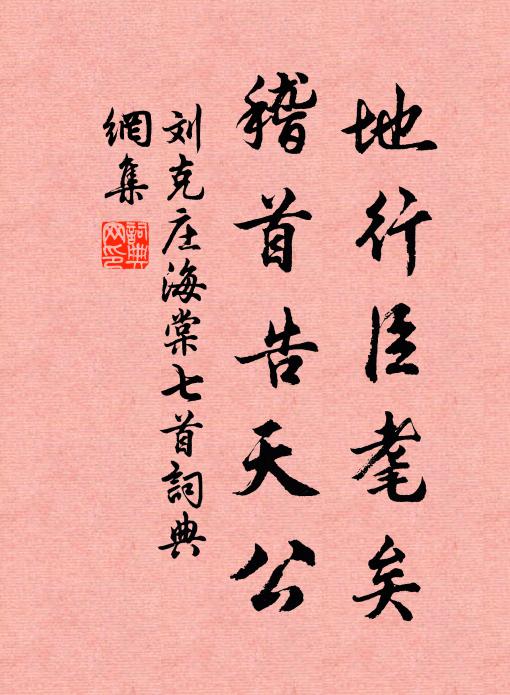 地行臣耄矣
稽首告天公
刘克庄海棠七首詞典
網集
詞典
网印